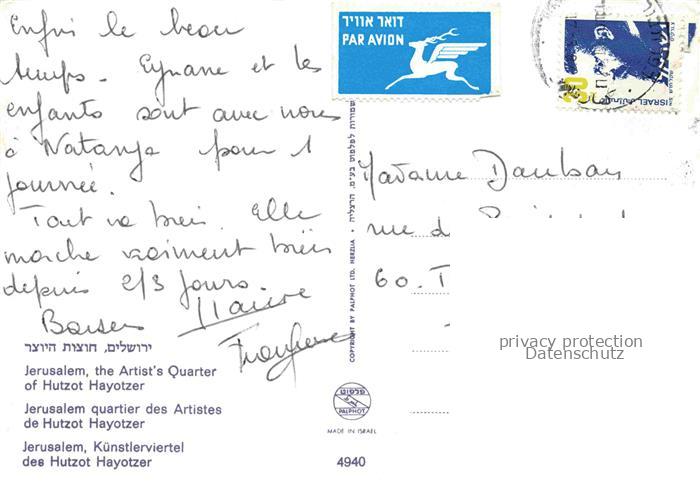 Enfin le beau
temps. Eynane et les
enfants sont avec nous
à Natanya pour 1
journée.
Tout va bien. Elle
marche vraiment bien
depuis 2/3 jours.
Baisers
ירושלים, חוצות היוצר
Jerusalem, the Artist's Quarter
of Hutzot Hayotzer
Jerusalem quartier des Artistes
de Hutzot Hayotzer
Jerusalem, Künstlerviertel
des Hutzot Hayotzer
דואר אוויר
PAR AVION
ISRAEL
COPYRIGHT BY PALPHOT LTD. HERZLIA
פלפוט
PALPHOT
MADE IN ISRAEL
4940
Madame
rue d
60. T
privacy protection
Datenschutz